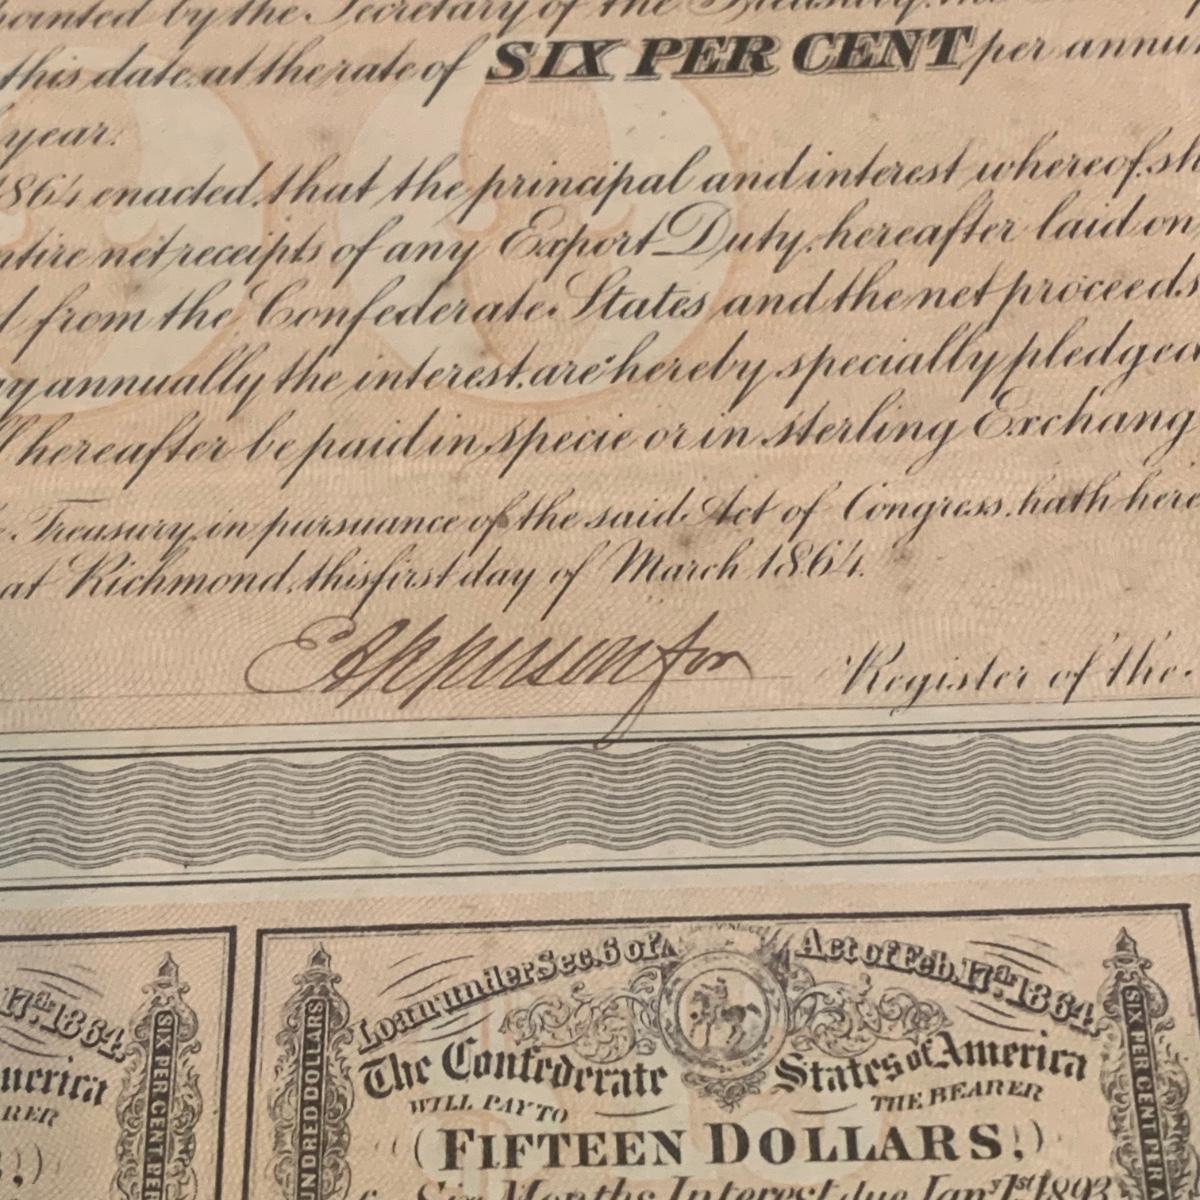 by the Secretary of the Treasury, the
this date, at the rate of SIX PER CENT per annu
year.
1864 enacted, that the principal and interest whereof sh
ntire net receipts of any Export Duty, hereafter laid on
d from the Confederate States and the net proceeds
ay annually the interest, are hereby specially pledged
ll hereafter be paid in specie or in sterling Exchang
Treasury, in pursuance of the said Act of Congress, hath here
at Richmond, this first day of March 1864.
E Apperson for Register of the
17th 1864. SIX PER CENT PER
merica
RER
HUNDRED DOLLARS
Loan under Sec. 6 of Act of Feb. 17th 1864.
The Confederate States of America
WILL PAY TO THE BEARER
FIFTEEN DOLLARS
Six Months Interest due Jany 1st
SIX PER CENT PER